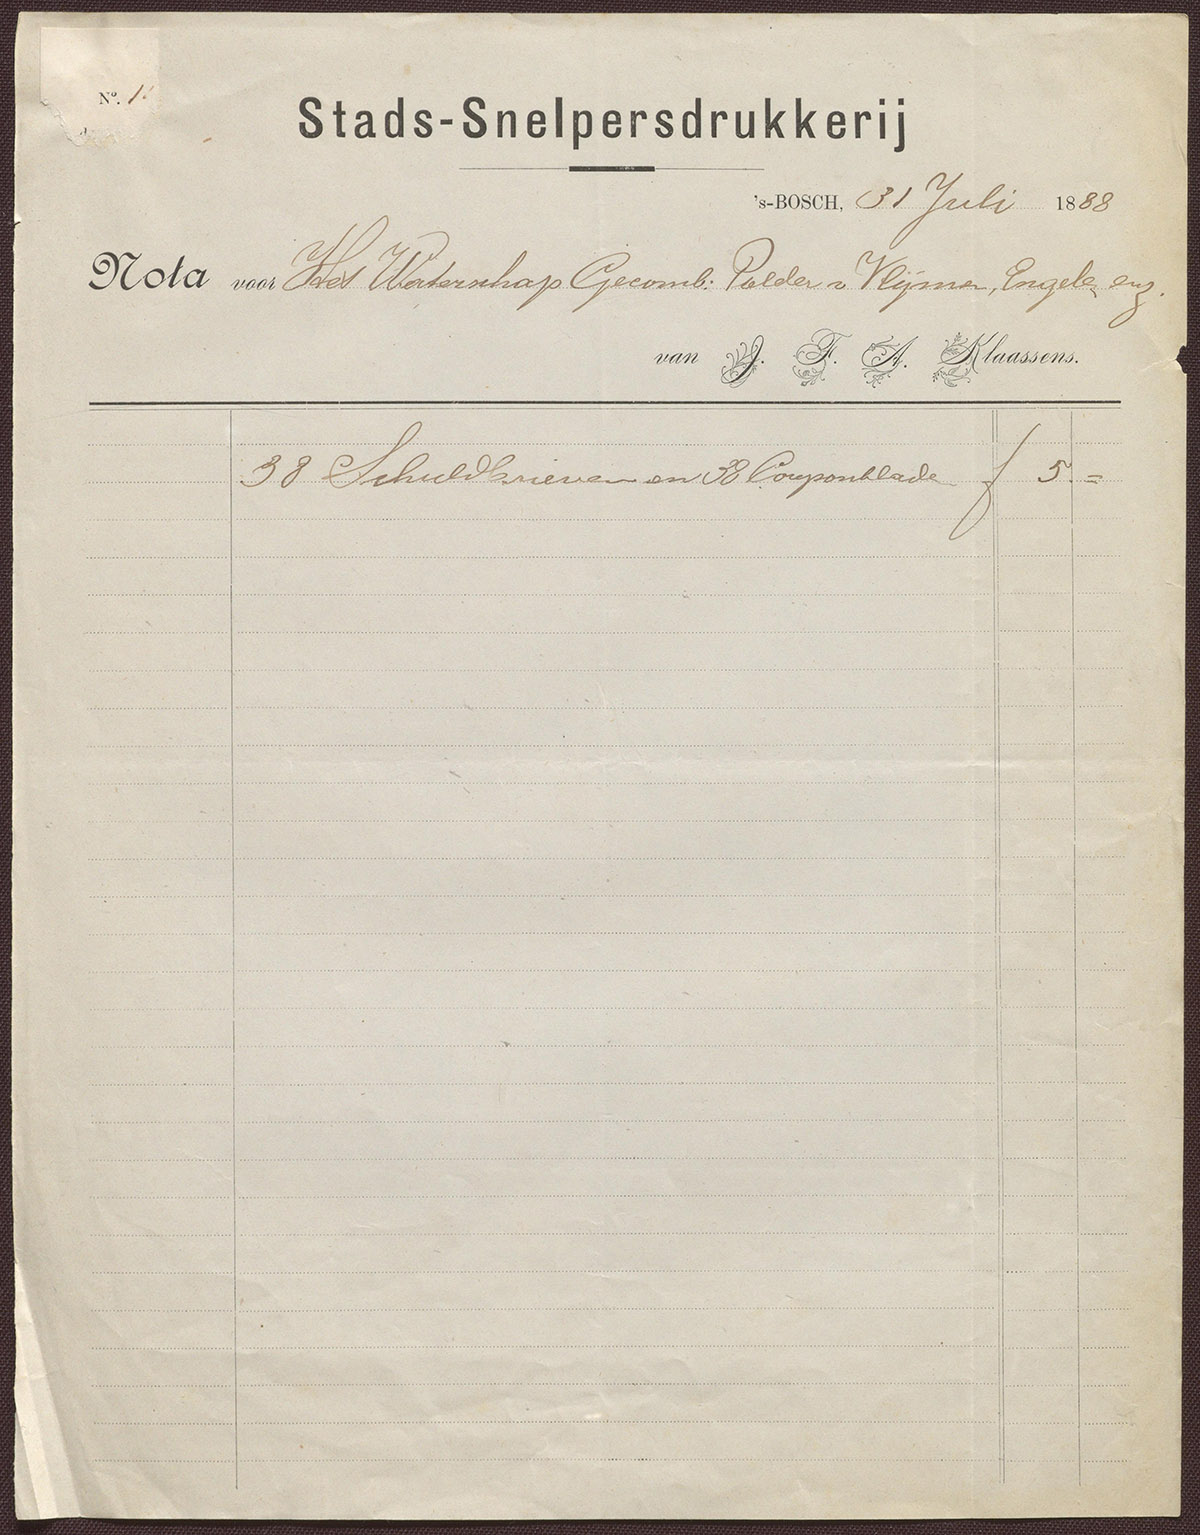 Nº. 1
Stads-Snelpersdrukkerij
's-BOSCH, 31 Juli 1888
Nota voor Het Waterschap Gecomb: Polder v Vlijmen, Engelen enz.
van J. F. A. Klaassens.
38 Schuldbrieven en 38 Couponbladen f 5. =